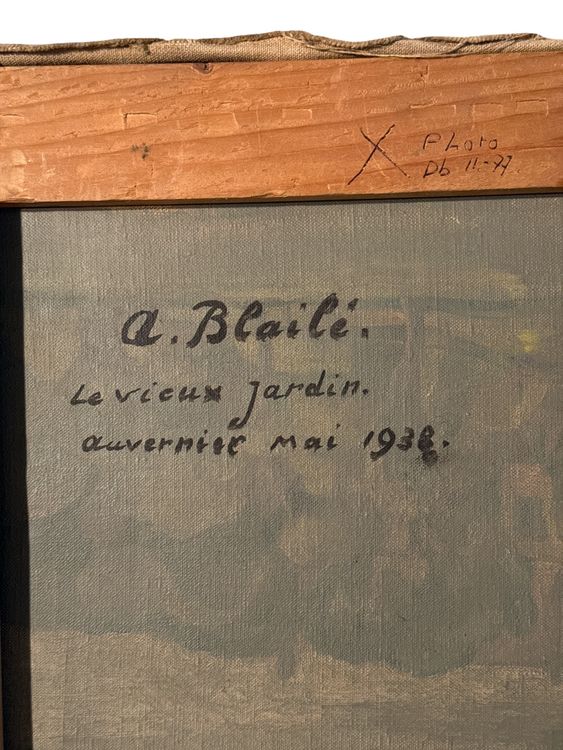 X Photo
Db 11-77
A. Blailé.
Le vieux jardin.
Auvernier mai 1938.